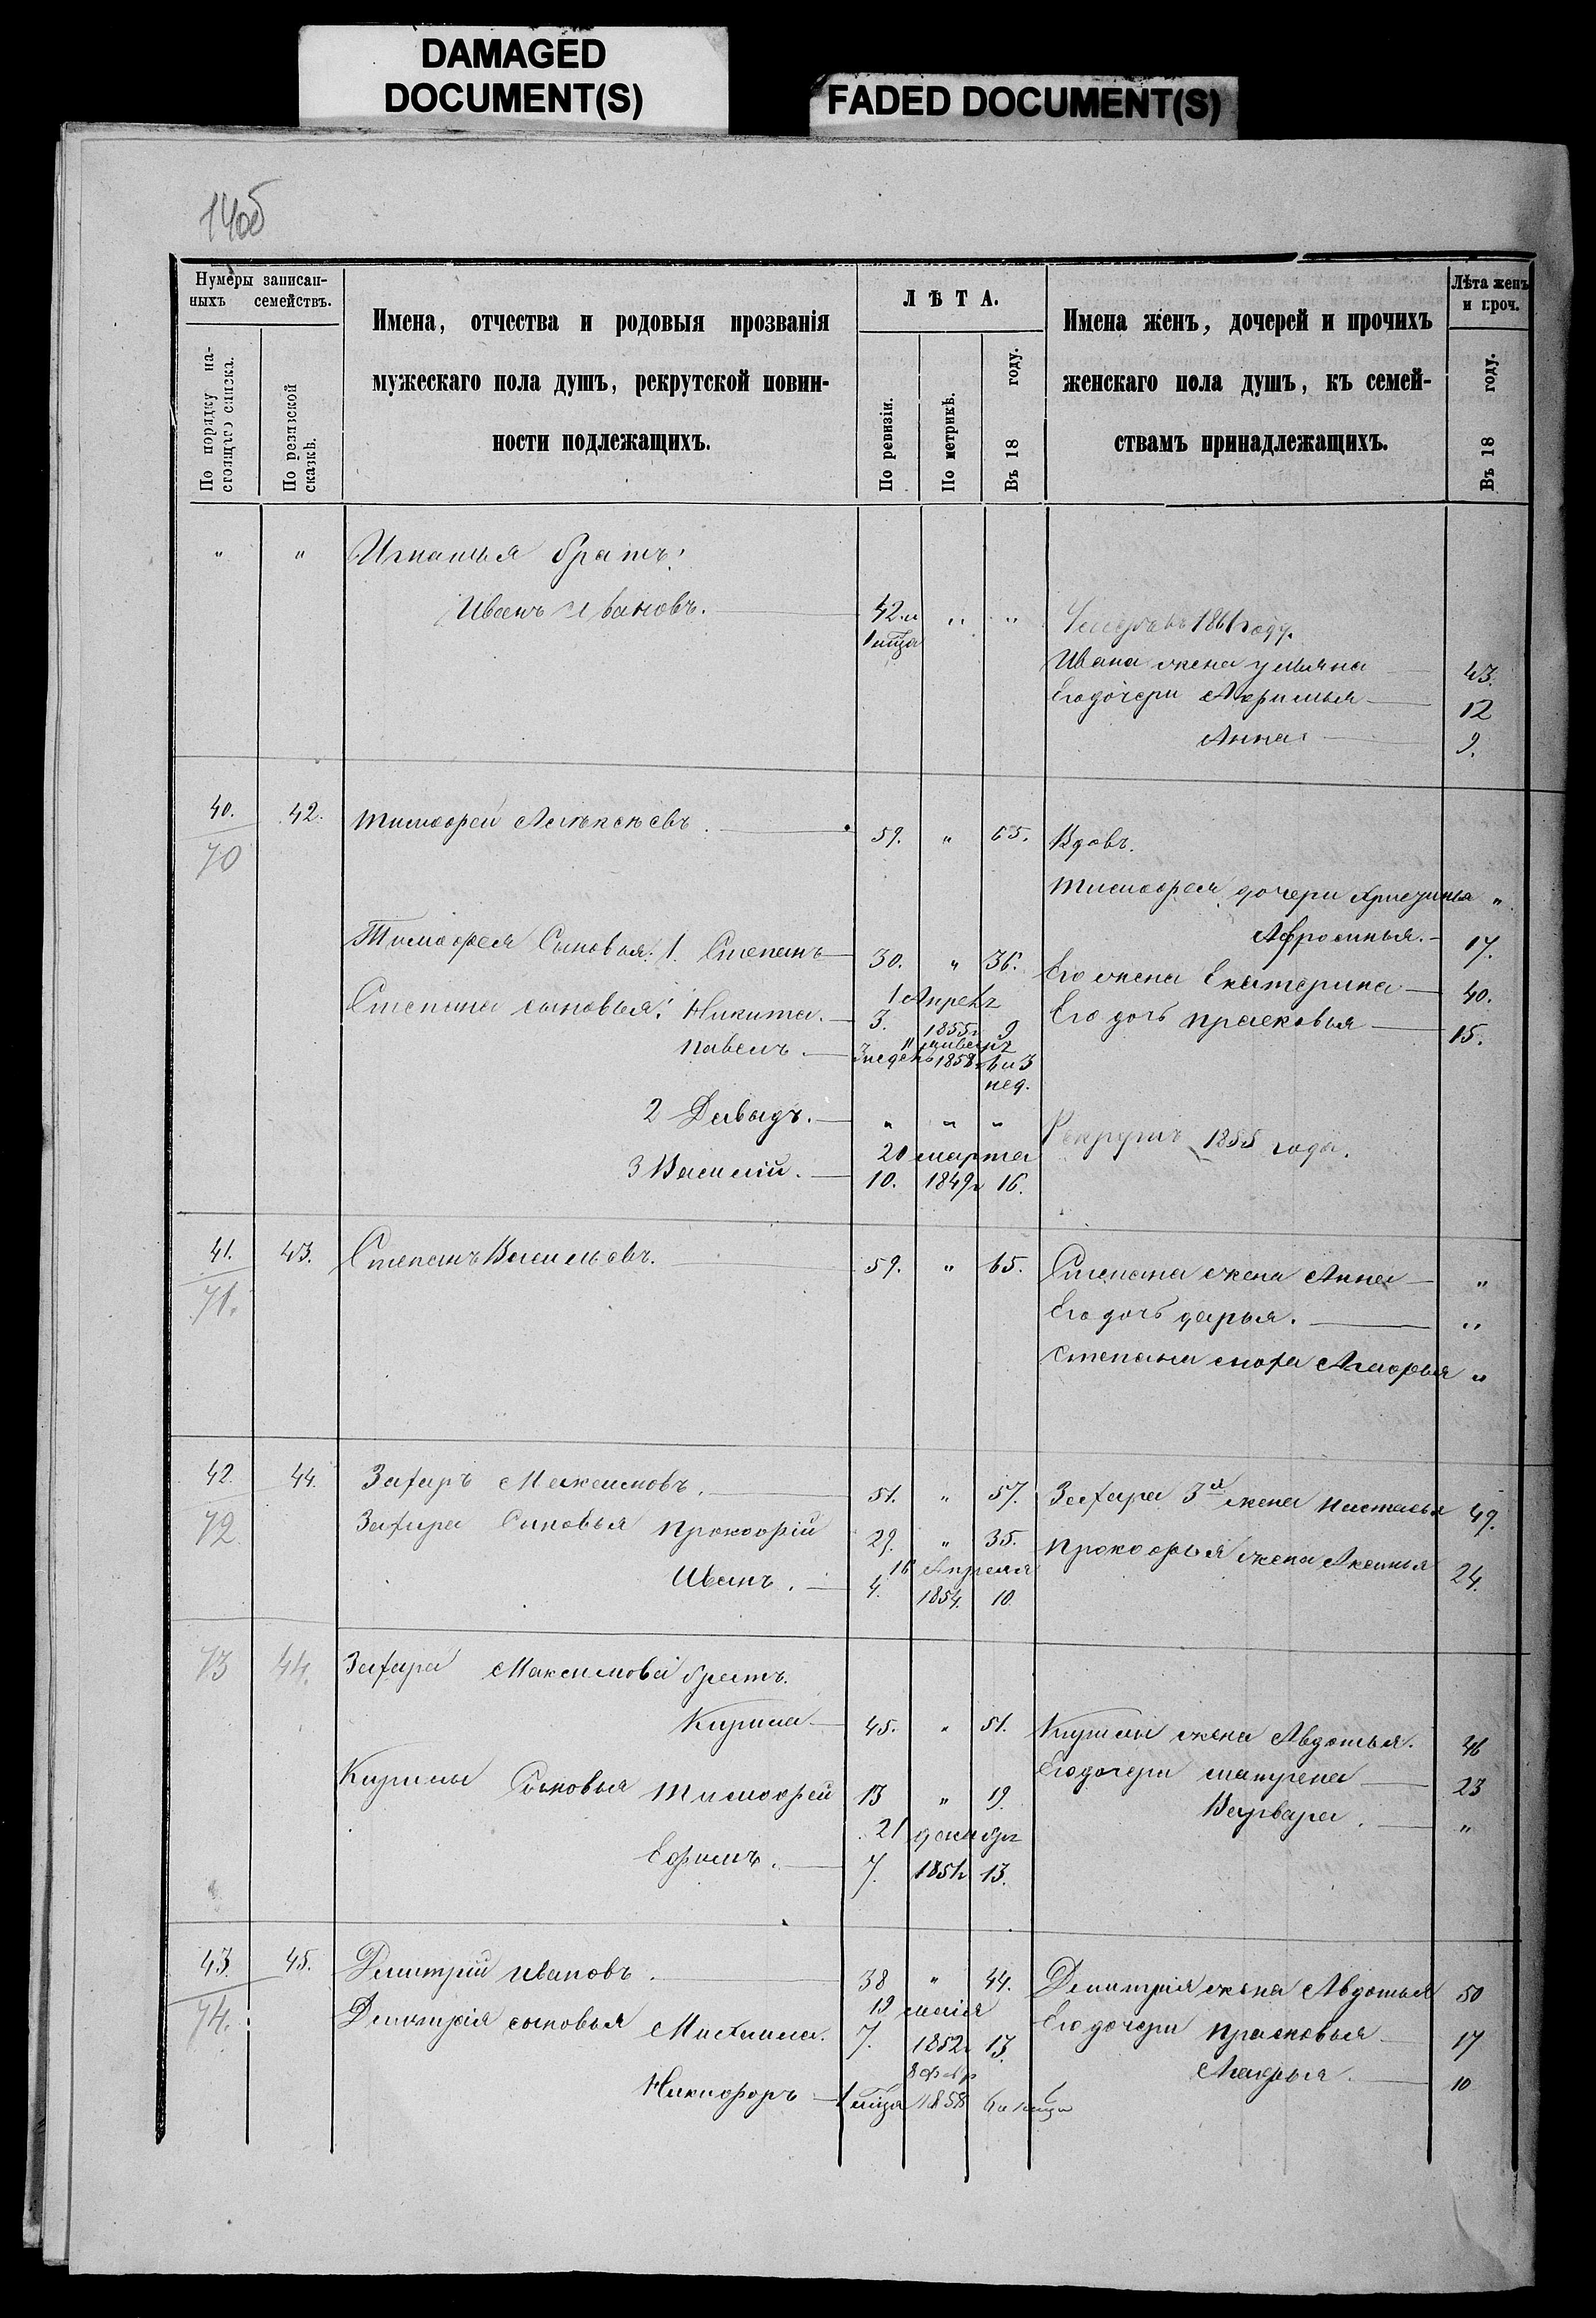 DAMAGED
DOCUMENT(S)
FADED DOCUMENT(S)
14об
Нумеры записан-
ныхъ семействъ.
По порядку на-
стоящаго списка.
По ревизской
сказкѣ.
Имена, отчества и родовыя прозванія
мужескаго пола душъ, рекрутской повин-
ности подлежащихъ.
ЛѢТА.
По ревизіи.
По метрикѣ.
Въ 18 году.
Имена женъ, дочерей и прочихъ
женскаго пола душъ, къ семей-
ствамъ принадлежащихъ.
Лѣта женъ
и проч.
Въ 18 году.
" " Игнатья братъ:
Иванъ Ивановъ. 42. и " "
1 мѣца
Умеръ въ 1861 году.
Ивана жена Ульяна 43.
Его дочери Акулина 12
Анна 9.
40. 42. Тимофей Алексѣевъ. 59. " 65. Вдовъ.
70
Тимофея дочери "
Афросинья. 17.
Тимофея Сыновья: 1. Степанъ 30. " 36. Его жена Екатерина 40.
Степана сыновья: Никита. 1 Апрѣл
3. 1855г 9 Его дочь Прасковья 15.
Павелъ. 11 января
3 недель 1858г 6 и 3
нед.
2 Давыдъ. " " " Рекрутъ 1855 года.
3 Василій. 20 марта
10. 1849г 16.
41. 43. Степанъ Васильевъ. 59. " 65. Степана жена Анна "
71. Его дочь Дарья. "
Степана сноха Марфа "
42. 44. Захаръ Максимовъ. 51. " 57. Захара 3я жена Настасья 49.
72. Захара Сыновья Прокофій 29. " 35. Прокофья жена Аксинья 24.
Иванъ. 16 Апреля
4. 1854. 10.
73 44. Захара Максимова братъ.
Кирила 45. " 51. Кирилы жена Авдотья. 46
Кирилы Сыновья Тимофей 13 " 19. Его дочери Матрена 23
Варвара. "
Ефимъ. 21 декабря
7. 1851г 13.
43. 45. Дмитрій Ивановъ. 38 " 44. Дмитрія жена Авдотья 50
74. Дмитрія сыновья Михаила. 19 маія
7. 1852г 13. Его дочери Прасковья 17
Марья. 10
Никифоръ 8 февр
1 мѣца 1858 6 и 1 мѣца